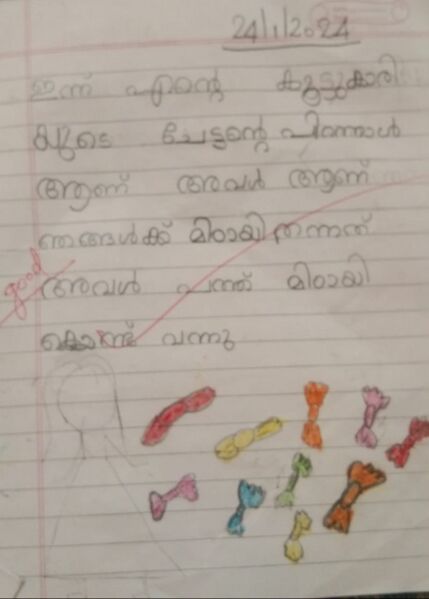 24/1/2024
ഇന്ന് എന്റെ കൂട്ടുകാരി
യുടെ ചേട്ടന്റെ പിറന്നാൾ
ആണ് അവൾ ആണ്
ഞങ്ങൾക്ക് മിഠായി തന്നത്
good
അവൾ പത്ത് മിഠായി
കൊണ്ട് വന്നു